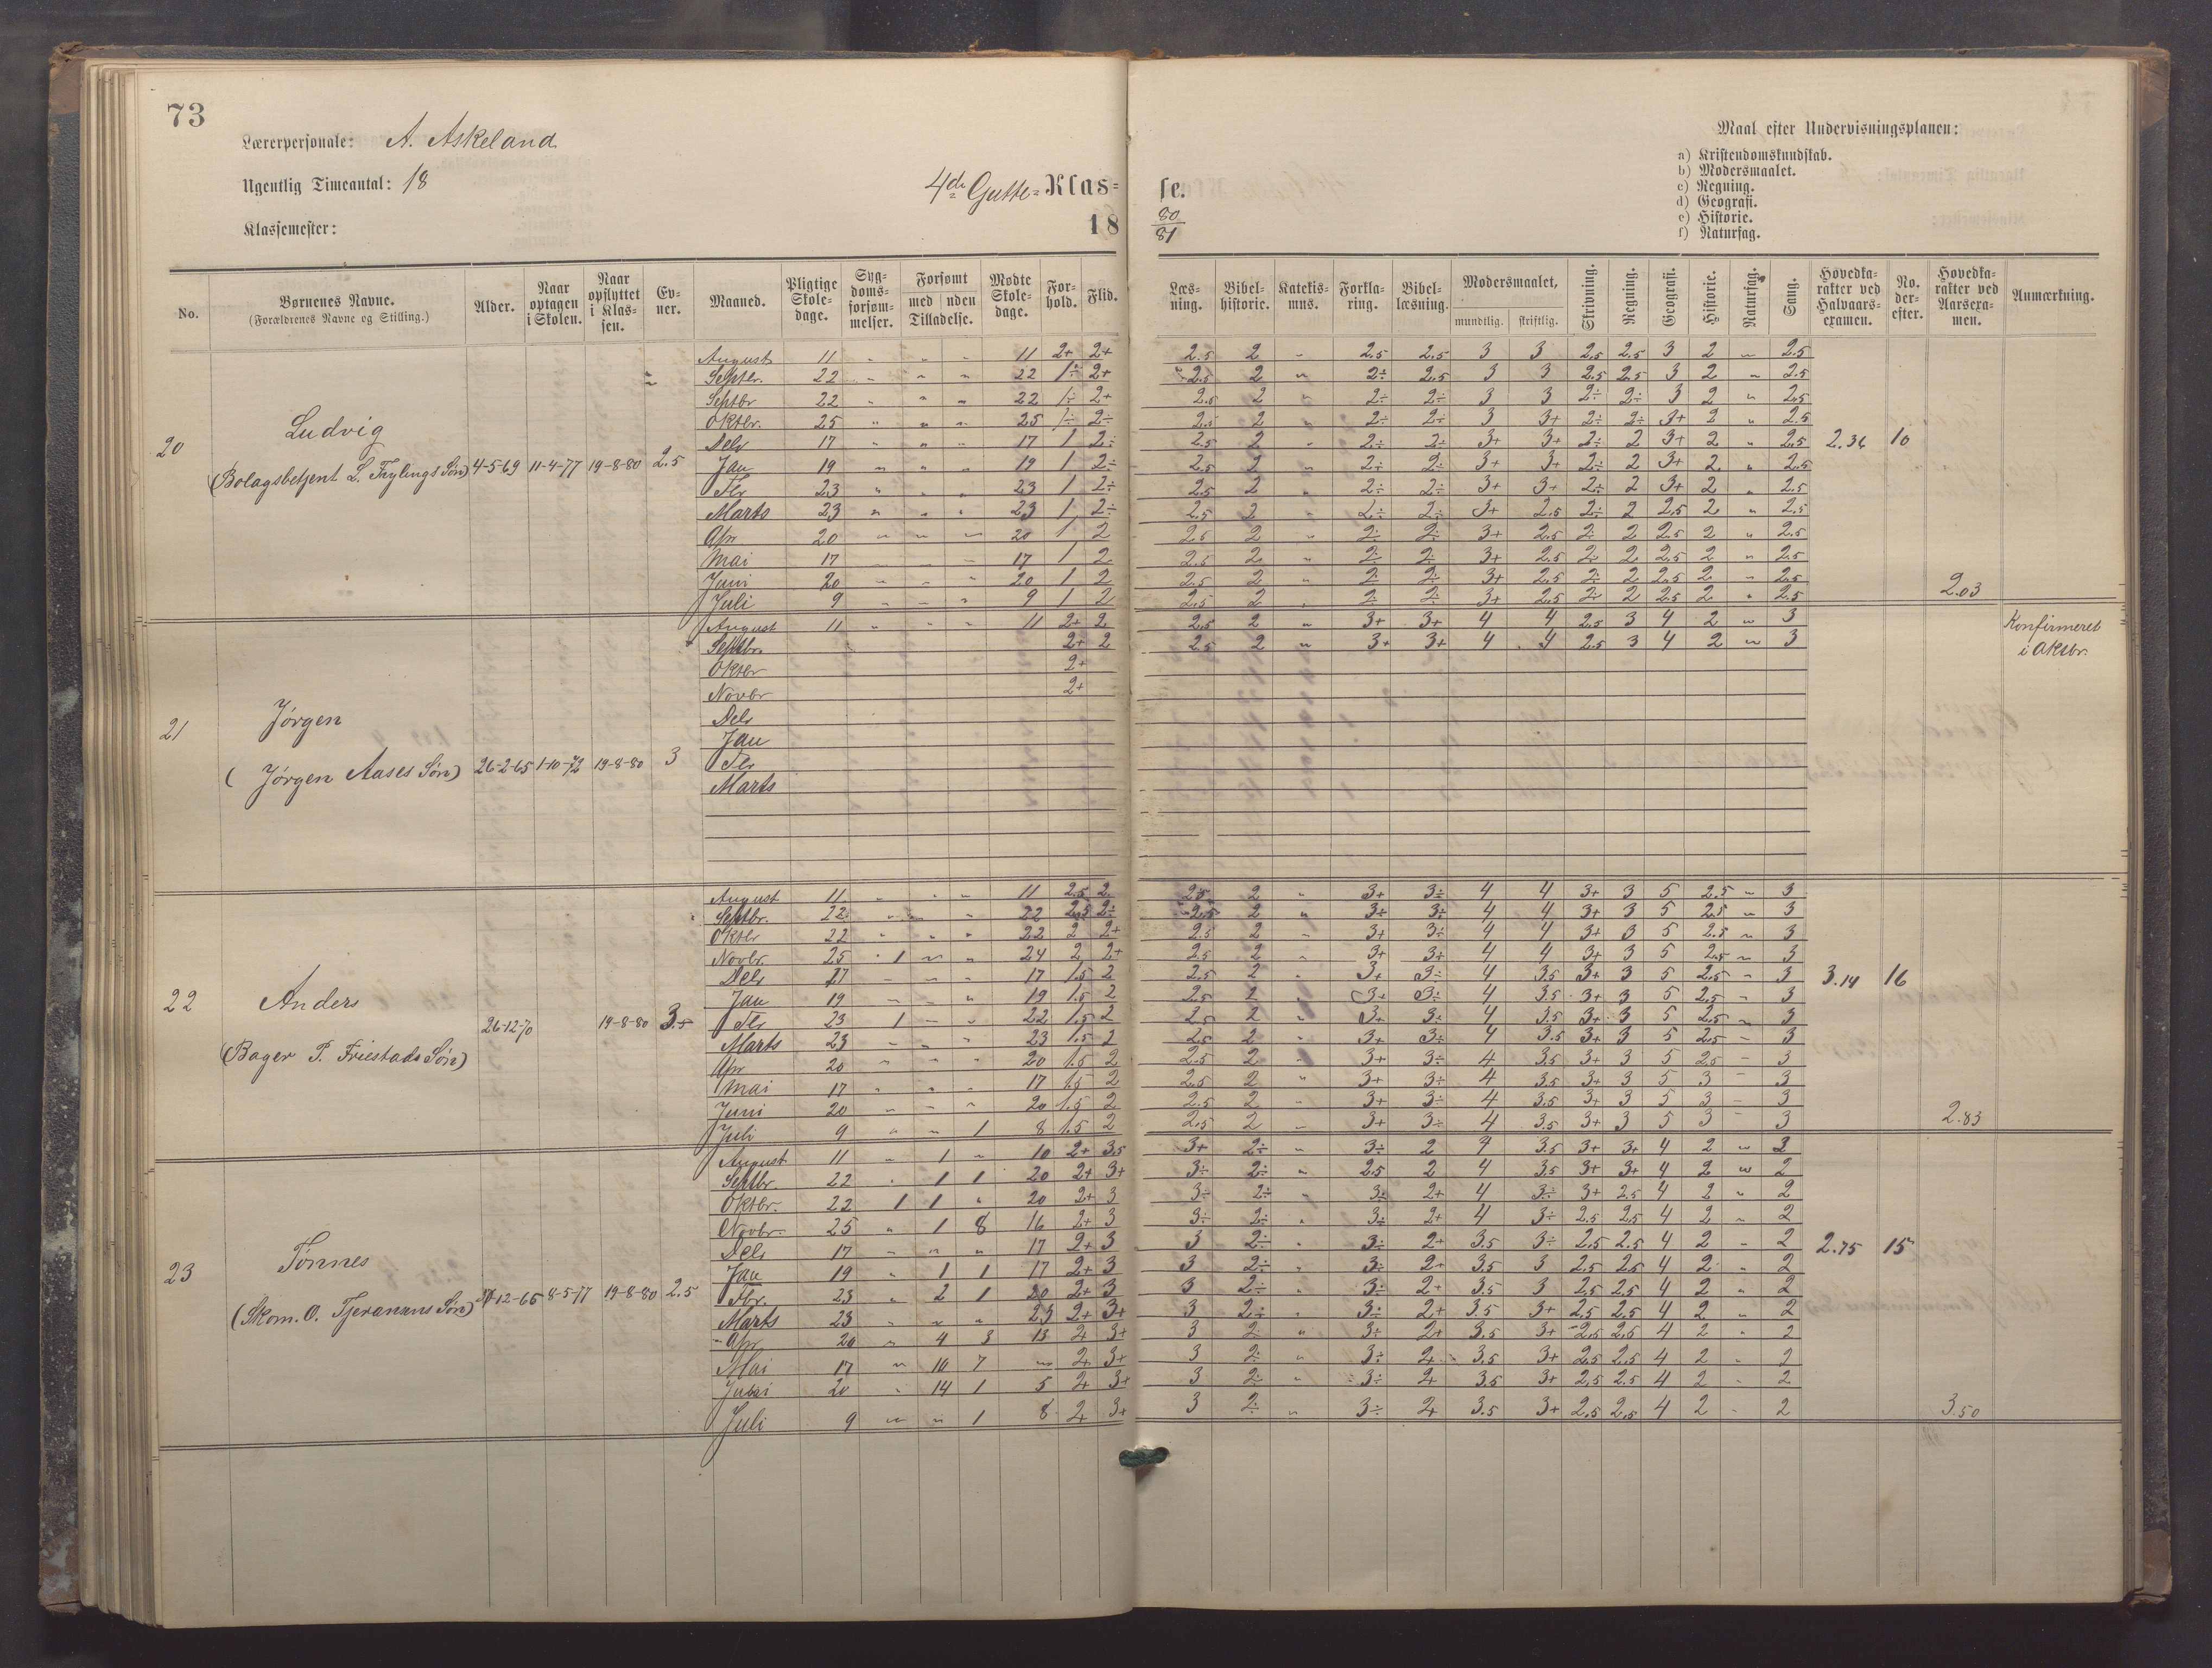 73
Lærerpersonale: A. Askeland
Ugentlig Timeantal: 18
Klassemester:
4de Gutte-Klasse.
18 80/81
Maal efter Undervisningsplanen:
a) Kristendomskundskab.
b) Modersmaalet.
c) Regning.
d) Geografi.
e) Historie.
f) Naturfag.
No. Børnenes Navne. (Forældrenes Navne og Stilling.) Alder. Naar optagen i Skolen. Naar opflyttet i Klassen. Evner. Maaned. Pligtige Skoledage. Sygdomsforsømmelser. Forsømt med nden Tilladelse. Mødte Skoledage. Forhold. Flid. Læsning. Bibelhistorie. Katekismus. Forklaring. Bibellæsning. Modersmaalet, mundtlig. skriftlig. Skrivning. Regning. Geografi. Historie. Naturfag. Sang. Hovedkarakter ved Halvaarsexamen. No. derefter. Hovedkarakter ved Aarsexamen. Anmærkning.
20 Ludvig
(Bolagsbetjent L. Thylings Søn) 4-5-69 11-4-77 19-8-80 2.5
August 11 " " " 11 2+ 2+ 2.5 2 " 2.5 2.5 3 3 2.5 2.5 3 2 " 2.5
Septbr. 22 " " " 22 1÷ 2+ 2.5 2 " 2÷ 2.5 3 3 2.5 2.5 3 2 " 2.5
Septbr 22 " " " 22 1÷ 2+ 2.5 2 " 2÷ 2÷ 3 3 2÷ 2÷ 3 2 " 2.5
Oktbr. 25 " " " 25 1÷ 2÷ 2.5 2 " 2÷ 2÷ 3 3+ 2÷ 2÷ 3+ 2 " 2.5
Debr 17 " " " 17 1 2÷ 2.5 2 " 2÷ 2÷ 3+ 3+ 2÷ 2 3+ 2 " 2.5 2.36 10
Jan 19 " " " 19 1 2÷ 2.5 2 " 2÷ 2÷ 3+ 3+ 2÷ 2 3+ 2 " 2.5
Fbr 23 " " " 23 1 2÷ 2.5 2 " 2÷ 2÷ 3+ 3+ 2÷ 2 3+ 2 " 2.5
Marts 23 " " " 23 1 2÷ 2.5 2 " 2÷ 2÷ 3+ 2.5 2÷ 2 2.5 2 " 2.5
Apr 20 " " " 20 1 2 2.5 2 " 2÷ 2÷ 3+ 2.5 2÷ 2 2.5 2 " 2.5
Mai 17 " " " 17 1 2 2.5 2 " 2÷ 2÷ 3+ 2.5 2÷ 2 2.5 2 " 2.5
Juni 20 " " " 20 1 2 2.5 2 " 2÷ 2÷ 3+ 2.5 2÷ 2 2.5 2 " 2.5
Juli 9 " " " 9 1 2 2.5 2 " 2÷ 2÷ 3+ 2.5 2÷ 2 2.5 2 " 2.5 2.03
21 Jørgen
(Jørgen Aases Søn) 26-2-65 1-10-72 19-8-80 3
August 11 " " " 11 2+ 2 2.5 2 " 3+ 3+ 4 4 2.5 3 4 2 " 3 Konfirmeret
Septbr. 2+ 2 2.5 2 " 3+ 3+ 4 4 2.5 3 4 2 " 3 i Oktbr.
Oktbr 2+
Novbr 2+
Debr
Jan
Fbr
Marts
22 Anders
(Bager P. Friestads Søn) 26-12-70 19-8-80 3.5
August 11 " " " 11 2.5 2 2.5 2 " 3+ 3÷ 4 4 3+ 3 5 2.5 " 3
Septbr. 22 " " " 22 2.5 2÷ 2.5 2 " 3÷ 3÷ 4 4 3+ 3 5 2.5 " 3
Oktbr 22 " " " 22 2 2+ 2.5 2 " 3+ 3÷ 4 4 3+ 3 5 2.5 " 3
Novbr. 25 1 " " 24 2 2+ 2.5 2 " 3+ 3÷ 4 4 3+ 3 5 2.5 " 3
Debr 17 " " " 17 1.5 2 2.5 2 " 3+ 3÷ 4 3.5 3+ 3 5 2.5 " 3 3.14 16
Jan 19 " " " 19 1.5 2 2.5 2 " 3+ 3÷ 4 3.5 3+ 3 5 2.5 " 3
Fbr 23 1 " " 22 1.5 2 2.5 2 " 3+ 3÷ 4 3.5 3+ 3 5 2.5 " 3
Marts 23 " " " 23 1.5 2 2.5 2 " 3+ 3÷ 4 3.5 3+ 3 5 2.5 " 3
Apr 20 " " " 20 1.5 2 2.5 2 " 3+ 3÷ 4 3.5 3+ 3 5 2.5 " 3
Mai 17 " " " 17 1.5 2 2.5 2 " 3+ 3÷ 4 3.5 3+ 3 5 3 " 3
Juni 20 " " " 20 1.5 2 2.5 2 " 3+ 3÷ 4 3.5 3+ 3 5 3 " 3
Juli 9 " " 1 8 1.5 2 2.5 2 " 3+ 3÷ 4 3.5 3+ 3 5 3 " 3 2.83
23 Tønnes
(Skom. O. Tjeranans Søn) 12-66 8-5-77 19-8-80 2.5
August 11 " 1 " 10 2+ 3.5 3+ 2÷ " 3÷ 2 4 3.5 3+ 3+ 4 2 " 2
Septbr. 22 " 1 1 20 2+ 3+ 3÷ 2÷ " 2.5 2 4 3.5 3+ 3+ 4 2 " 2
Oktbr. 22 1 1 " 20 2+ 3 3÷ 2÷ " 3÷ 2+ 4 3÷ 3+ 2.5 4 2 " 2
Novbr. 25 " 1 8 16 2+ 3 3÷ 2÷ " 3÷ 2+ 4 3÷ 2.5 2.5 4 2 " 2
Debr 17 " " " 17 2+ 3 3 2÷ " 3÷ 2+ 3.5 3÷ 2.5 2.5 4 2 " 2 2.75 15
Jan 19 " 1 1 17 2+ 3 3 2÷ " 3÷ 2+ 3.5 3 2.5 2.5 4 2 " 2
Fbr. 23 " 2 1 20 2+ 3 3 2÷ " 3÷ 2+ 3.5 3 2.5 2.5 4 2 " 2
Marts 23 " " " 23 2+ 3+ 3 2÷ " 3÷ 2+ 3.5 3+ 2.5 2.5 4 2 " 2
Apr 20 " 4 3 13 2+ 3+ 3 2÷ " 3÷ 2+ 3.5 3+ 2.5 2.5 4 2 " 2
Mai 17 " 10 7 " 2+ 3+ 3 2÷ " 3÷ 2+ 3.5 3+ 2.5 2.5 4 2 " 2
Juni 20 " 14 1 5 2+ 3+ 3 2÷ " 3÷ 2+ 3.5 3+ 2.5 2.5 4 2 " 2
Juli 9 " " 1 8 2+ 3+ 3 2÷ " 3÷ 2+ 3.5 3+ 2.5 2.5 4 2 " 2 3.50